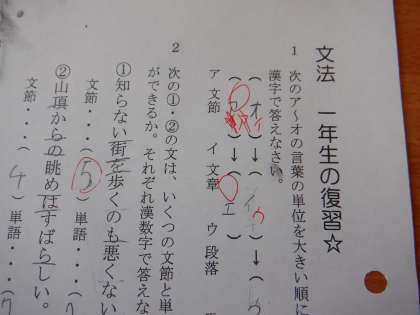 文法 一年生の復習☆
1 次のア～オの言葉の単位を大きい順に
漢字で答えなさい。
ア 文節 イ 文章 ウ 段落
2 次の①・②の文は、いくつの文節と単
ができるか。それぞれ漢数字で答えな
①知らない街を歩くのも悪くない
文節・・・(5) 単語・・・(
②山頂からの眺めはすばらしい。
文節・・・( 4 ) 単語・・・(